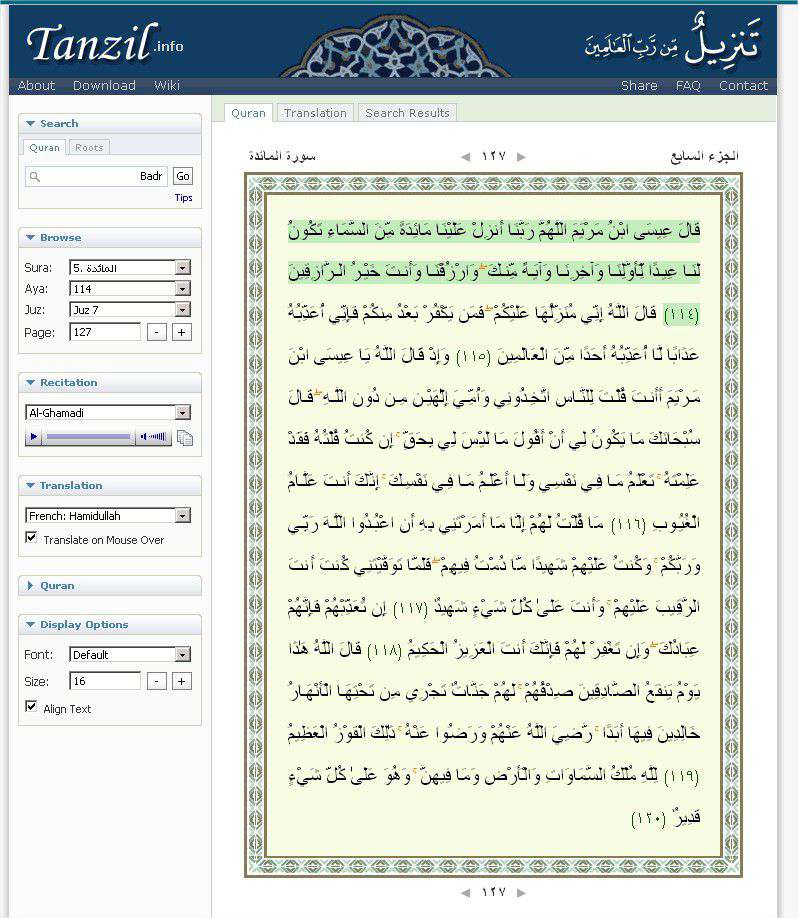 Tanzil.info
تَنزِيلٌ مِّن رَّبِّ الْعَالَمِينَ
About Download Wiki
Share FAQ Contact
Search
Quran Roots
Badr Go
Tips
Browse
Sura: 5. المائدة
Aya: 114
Juz: Juz 7
Page: 127 - +
Recitation
Al-Ghamadi
Translation
French: Hamidullah
Translate on Mouse Over
Quran
Display Options
Font: Default
Size: 16 - +
Align Text
Quran Translation Search Results
الجزء السابع ١٢٧ سورة المائدة
قَالَ عِيسَى ابْنُ مَرْيَمَ اللَّهُمَّ رَبَّنَا أَنزِلْ عَلَيْنَا مَائِدَةً مِّنَ السَّمَاءِ تَكُونُ
لَنَا عِيدًا لِّأَوَّلِنَا وَآخِرِنَا وَآيَةً مِّنكَ ۖ وَارْزُقْنَا وَأَنتَ خَيْرُ الرَّازِقِينَ
(١١٤) قَالَ اللَّهُ إِنِّي مُنَزِّلُهَا عَلَيْكُمْ ۖ فَمَن يَكْفُرْ بَعْدُ مِنكُمْ فَإِنِّي أُعَذِّبُهُ
عَذَابًا لَّا أُعَذِّبُهُ أَحَدًا مِّنَ الْعَالَمِينَ (١١٥) وَإِذْ قَالَ اللَّهُ يَا عِيسَى ابْنَ
مَرْيَمَ أَأَنتَ قُلْتَ لِلنَّاسِ اتَّخِذُونِي وَأُمِّيَ إِلَٰهَيْنِ مِن دُونِ اللَّهِ ۖ قَالَ
سُبْحَانَكَ مَا يَكُونُ لِي أَنْ أَقُولَ مَا لَيْسَ لِي بِحَقٍّ ۚ إِن كُنتُ قُلْتُهُ فَقَدْ
عَلِمْتَهُ ۚ تَعْلَمُ مَا فِي نَفْسِي وَلَا أَعْلَمُ مَا فِي نَفْسِكَ ۚ إِنَّكَ أَنتَ عَلَّامُ
الْغُيُوبِ (١١٦) مَا قُلْتُ لَهُمْ إِلَّا مَا أَمَرْتَنِي بِهِ أَنِ اعْبُدُوا اللَّهَ رَبِّي
وَرَبَّكُمْ ۚ وَكُنتُ عَلَيْهِمْ شَهِيدًا مَّا دُمْتُ فِيهِمْ ۖ فَلَمَّا تَوَفَّيْتَنِي كُنتَ أَنتَ
الرَّقِيبَ عَلَيْهِمْ ۚ وَأَنتَ عَلَىٰ كُلِّ شَيْءٍ شَهِيدٌ (١١٧) إِن تُعَذِّبْهُمْ فَإِنَّهُمْ
عِبَادُكَ ۖ وَإِن تَغْفِرْ لَهُمْ فَإِنَّكَ أَنتَ الْعَزِيزُ الْحَكِيمُ (١١٨) قَالَ اللَّهُ هَٰذَا
يَوْمُ يَنفَعُ الصَّادِقِينَ صِدْقُهُمْ ۚ لَهُمْ جَنَّاتٌ تَجْرِي مِن تَحْتِهَا الْأَنْهَارُ
خَالِدِينَ فِيهَا أَبَدًا ۚ رَّضِيَ اللَّهُ عَنْهُمْ وَرَضُوا عَنْهُ ۚ ذَٰلِكَ الْفَوْزُ الْعَظِيمُ
(١١٩) لِلَّهِ مُلْكُ السَّمَاوَاتِ وَالْأَرْضِ وَمَا فِيهِنَّ ۚ وَهُوَ عَلَىٰ كُلِّ شَيْءٍ
قَدِيرٌ (١٢٠)
١٢٧